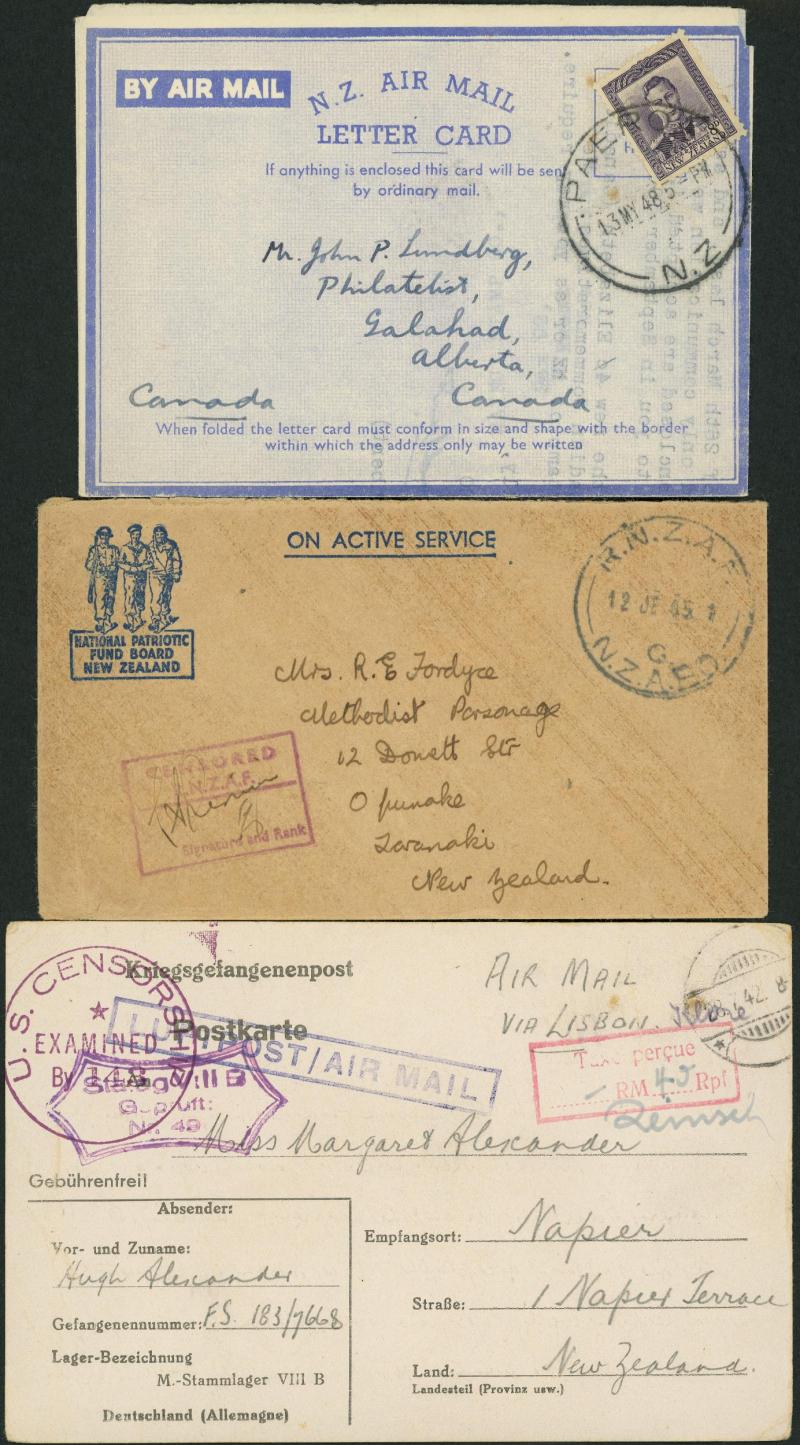 BY AIR MAIL
N.Z. AIR MAIL
LETTER CARD
If anything is enclosed this card will be sent
by ordinary mail.
NEW ZEALAND
13 MY 48
N.Z
Mr. John P. Lundberg,
Philatelist,
Galahad,
Alberta,
Canada Canada
When folded the letter card must conform in size and shape with the border
within which the address only may be written
ON ACTIVE SERVICE
NATIONAL PATRIOTIC
FUND BOARD
NEW ZEALAND
R.N.Z.A.F.
12 JE 45
G.
Mrs. R. E Fordyce
Methodist Parsonage
12 Donett Str
Opunake
Taranaki
New Zealand.
CENSORED
R.N.Z.A.F.
Signature and Rank
Kriegsgefangenenpost
Postkarte
U.S. CENSORSHIP
EXAMINED
By
LUFTPOST/AIR MAIL
Stalag VIII B
Geprüft:
Nr. 49
AIR MAIL
VIA LISBON.
42
Taxe perçue
RM 45 Rpf
An Miss Margaret Alexander
Gebührenfrei!
Absender:
Vor- und Zuname:
Hugh Alexander
Gefangenennummer: F.S. 183/7668
Lager-Bezeichnung
M.-Stammlager VIII B
Deutschland (Allemagne)
Empfangsort: Napier
Straße: 1 Napier Terrace
Land: New Zealand.
Landesteil (Provinz usw.)